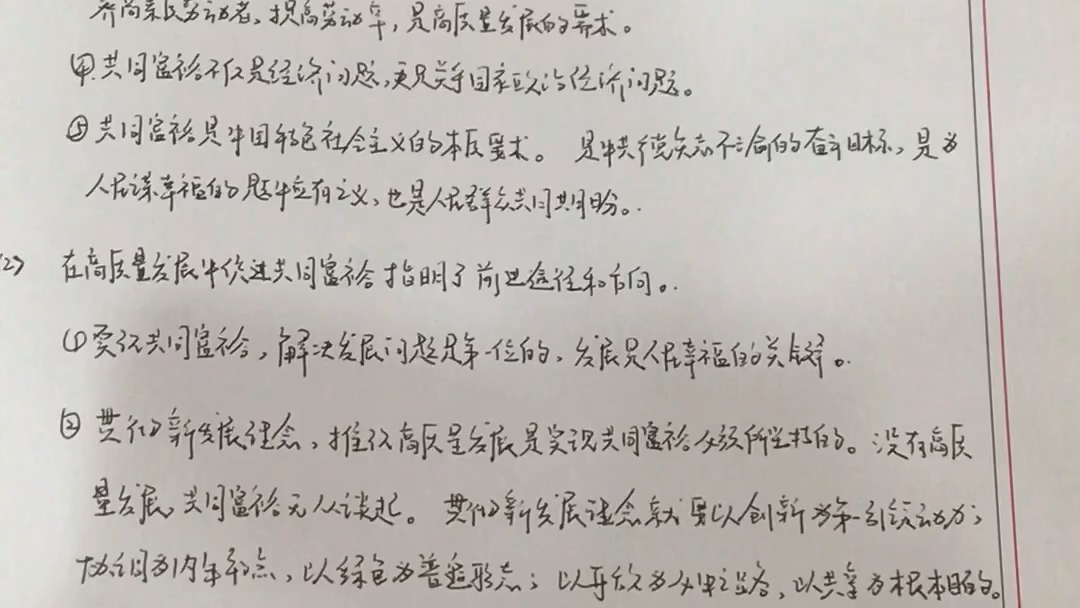 养高素质劳动者,提高劳动率,是高质量发展的需求。
④共同富裕不仅是经济问题,更是关乎国家政治经济问题。
⑤共同富裕是中国特色社会主义的本质要求。是中共党矢志不渝的奋斗目标,是为
人民谋幸福的题中应有之义,也是人民群众共同期盼。
(2) 在高质量发展中促进共同富裕指明了前进途径和方向。
①实现共同富裕,解决发展问题是第一位的,发展是人民幸福的关键。
②贯彻新发展理念,推动高质量发展是实现共同富裕必须所坚持的。没有高质
量发展,共同富裕无从谈起。贯彻新发展理念就要以创新为第一引领动力;
协调为内生特点,以绿色为普遍形态;以开放为必由之路,以共享为根本目的。